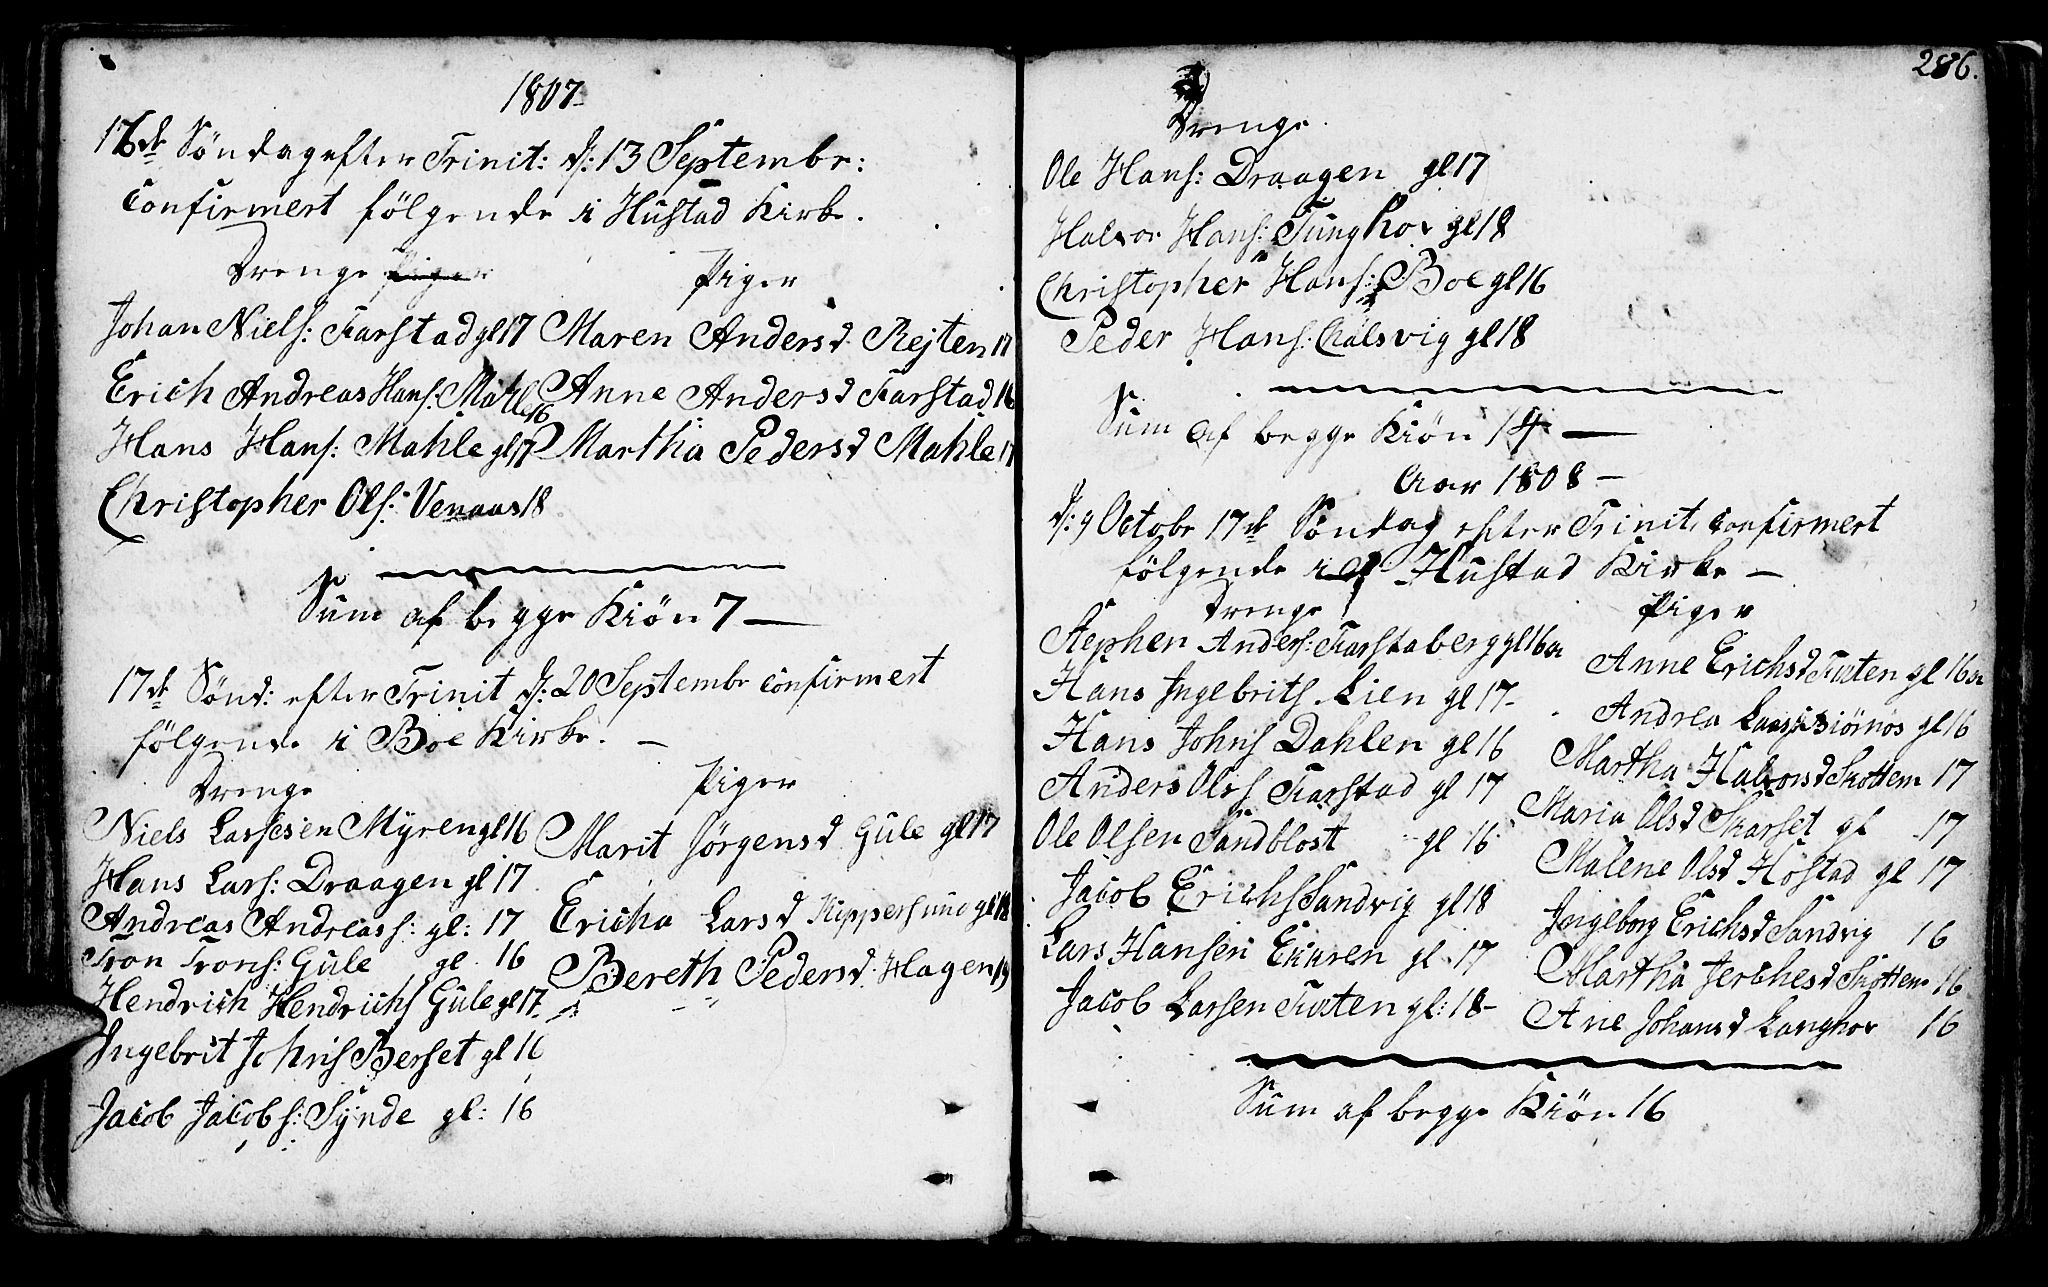 1807
16de Söndag efter Trinit: d: 13 Septembr:
Confirmert fölgende i Hustad Kirke.
Drenge Piger
Piger
Johan Niels: Farstad gl 17
Erich Andreas Hans: Mahle 16
Hans Hans: Mahle gl 17
Christopher Ols: Venaas 18
Maren Andersd Rejten 17
Anne Andersd Farstad 16
Martha Pedersd Mahle 17
Sum af begge Kiön 7
17de Sönd: efter Trinit d: 20 Septembr confirmert
fölgende i Boe Kirke.
Drenge
Niels Larsesen Myren gl 16
Hans Lars: Draagen gl 17
Andreas Andreass: gl: 17
Tron Trons: Gule gl. 16
Hendrich Hendrichs Gule gl 17
Ingebrit Johns Berset gl 16
Jacob Jacobs: Synde gl: 16
Piger
Marit Jörgensd Gule gl 17
Ericha Larsd Kippersund gl 18
Bereth Pedersd. Hagen 19
286.
Drenge.
Ole Hans: Draagen gl 17
Halvor Hans: Tunghor gl 18
Christopher Hans: Boe gl 16
Peder Hans: Chalsvig gl 18
Sum af begge Kiön 14
Aar 1808
d: 9 Octobr 17de Söndag efter Trinit. confirmert
fölgende i Hustad Kirke
Drenge
Stephen Anders: Farstaberg gl 16
Hans Ingebrits Lien gl 17
Hans Johns Dahlen gl 16
Anders Ols Farstad gl 17
Ole Olsen Sandblost gl 16
Jacob Erichs Sandvig gl 18
Lars Hansen Ekren gl. 17
Jacob Larsen Tusten gl: 18
Piger
Anne Erichsd Tusten gl 16
Andrea Larsd Biörnos gl 16
Martha Halvorsd Skottem 17
Maria Olsd Skarset gl 17
Malene Olsd Hostad gl 17
Ingeborg Erichsd Sandvig 16
Martha Jerchesd Skottem 16
Ane Johansd Langhor 16
Sum af begge Kiön 16